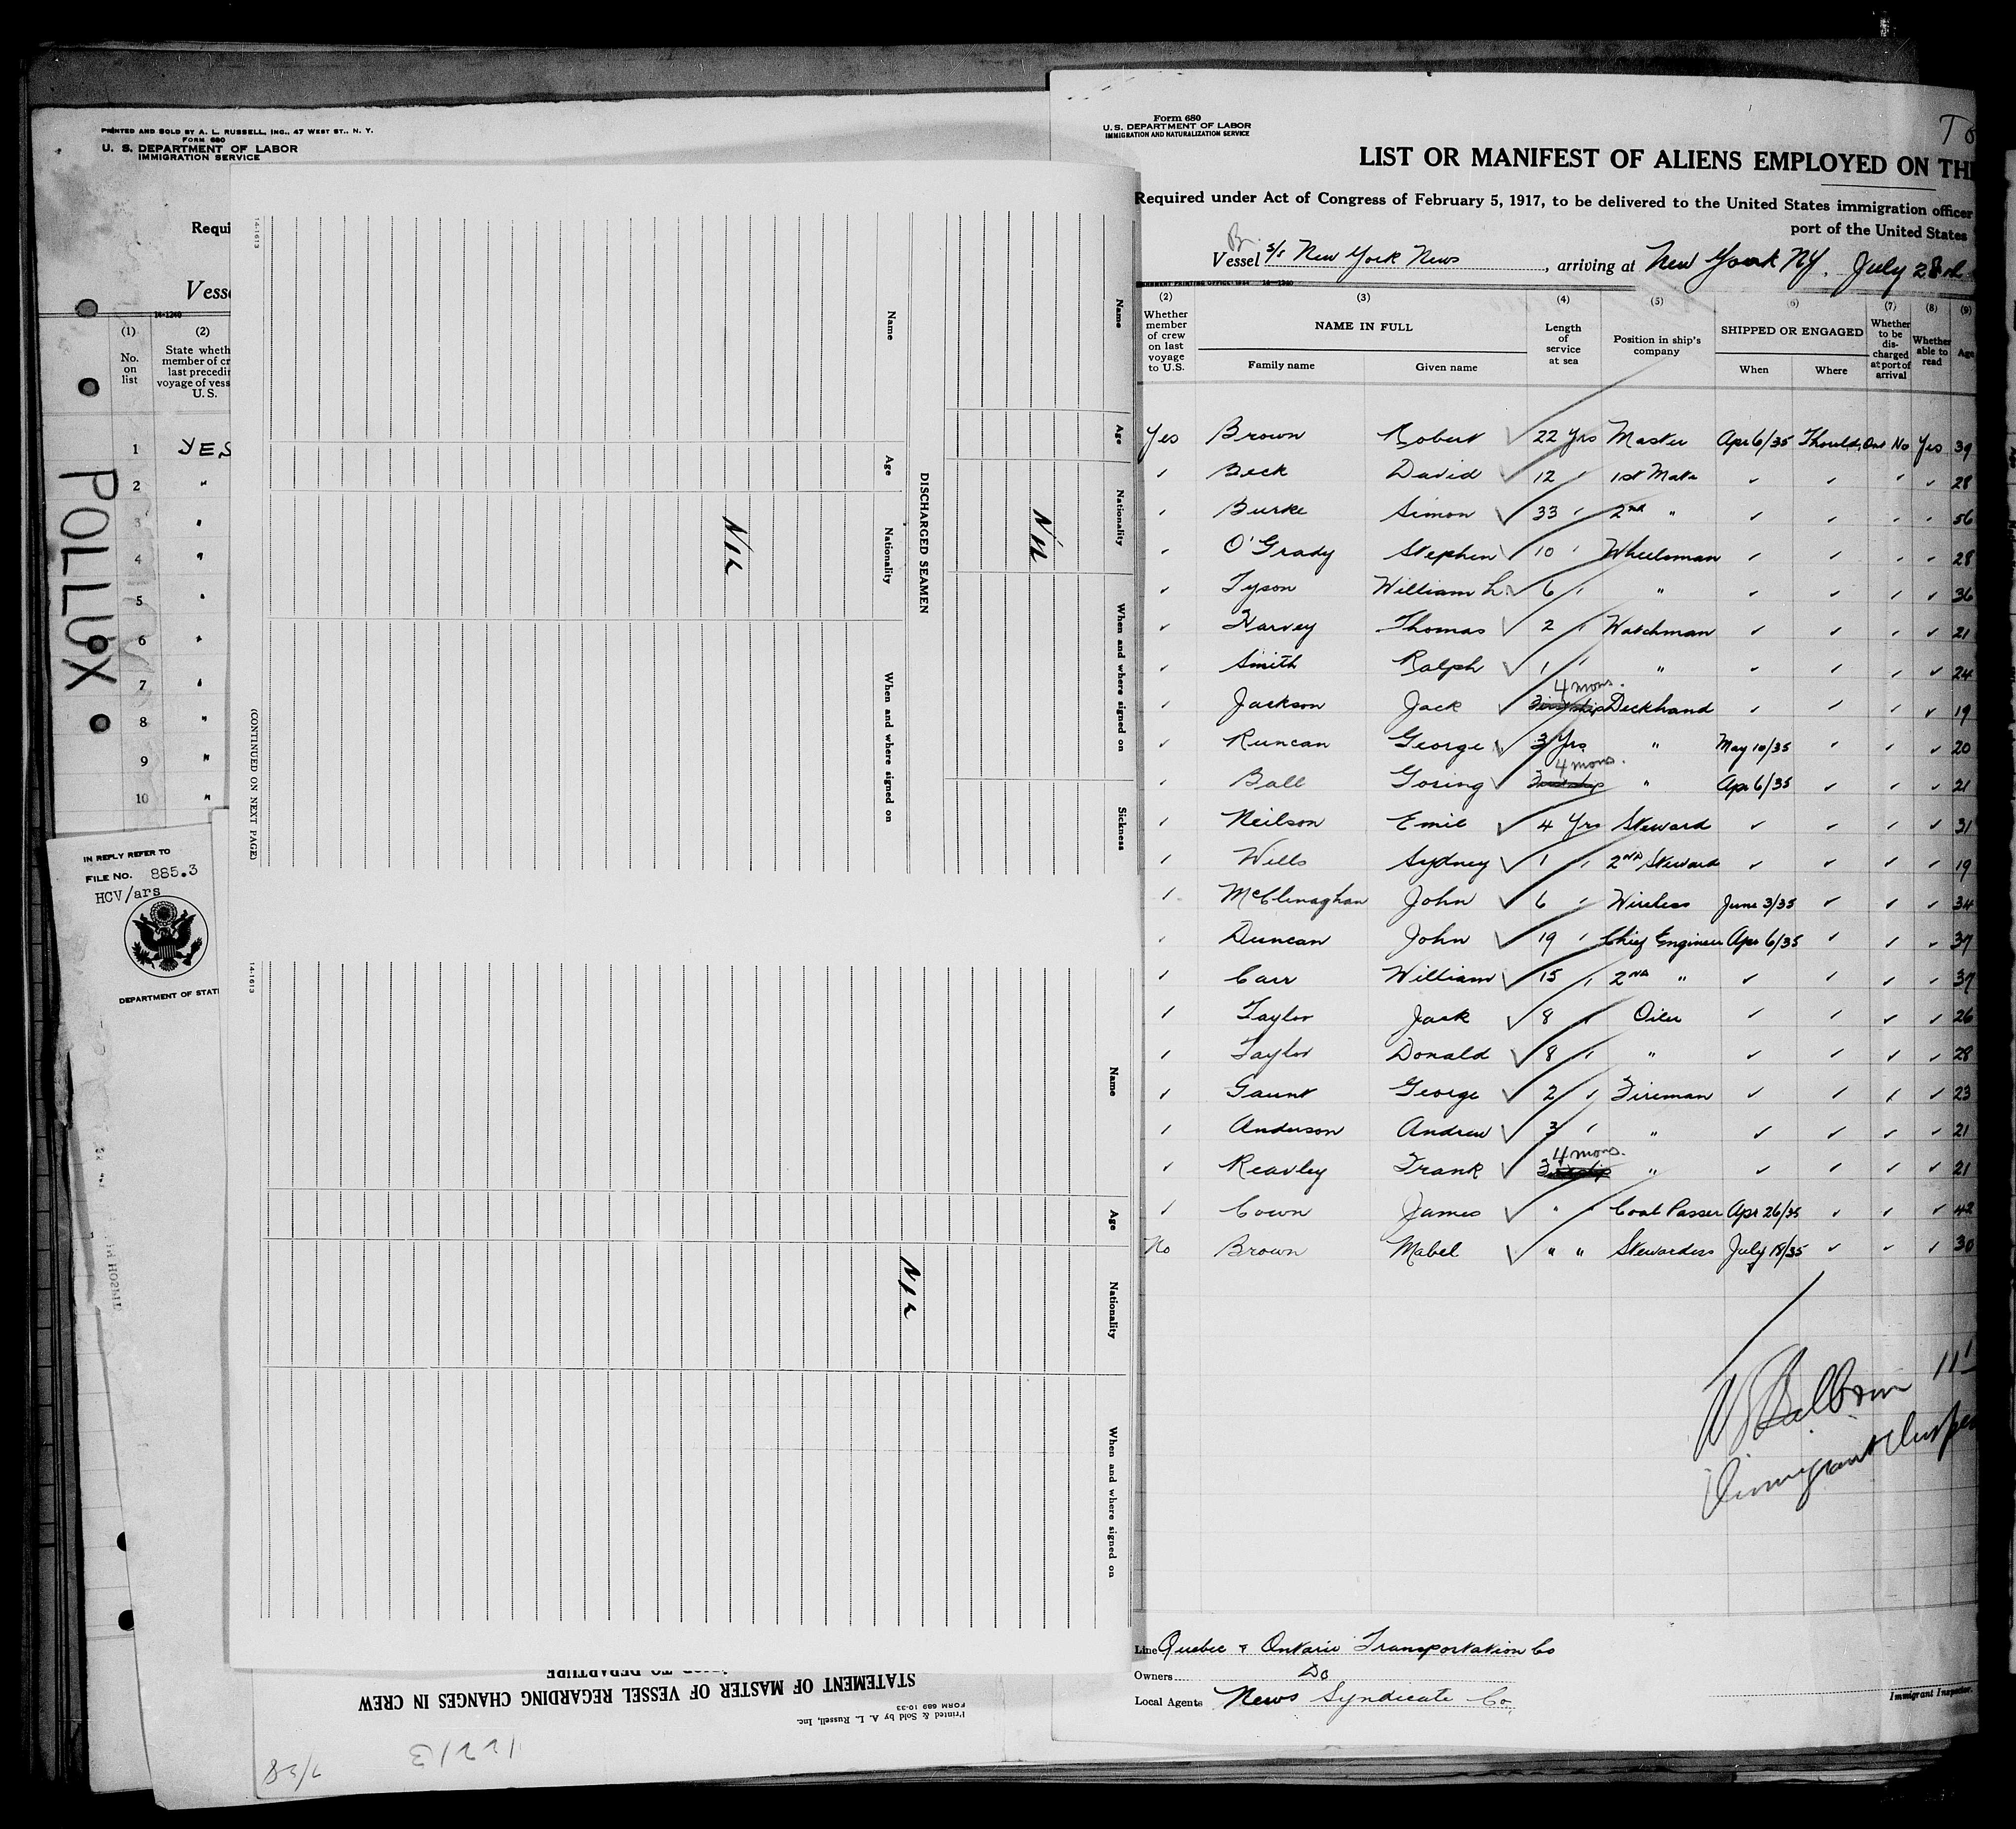 PRINTED AND SOLD BY A. L. RUSSELL, INC., 47 WEST ST., N. Y.
FORM 680
U. S. DEPARTMENT OF LABOR
IMMIGRATION SERVICE
Requi
Vess
14-1240
(1) (2)
No. on list
State wheth
member of cr
last precedin
voyage of vess
U. S.
1 YES
2 "
3 "
4 "
5 "
6 "
7 "
8 "
9 "
10 "
POLLUX
IN REPLY REFER TO
FILE NO. 885.3
HCV/ars
DEPARTMENT OF STAT
14-1613
(CONTINUED ON NEXT PAGE)
Name Age Nationality When and where signed on Sickness
NIL
DISCHARGED SEAMEN
Name Age Nationality When and where signed on
NIL
14-1613
Name Age Nationality When and where signed on
NIL
STATEMENT OF MASTER OF VESSEL REGARDING CHANGES IN CREW
PRIOR TO DEPARTURE
FORM 689 10-33
Printed & Sold by A. L. Russell, Inc.
12213
7/28
Form 680
U.S. DEPARTMENT OF LABOR
IMMIGRATION AND NATURALIZATION SERVICE
LIST OR MANIFEST OF ALIENS EMPLOYED ON TH
Required under Act of Congress of February 5, 1917, to be delivered to the United States immigration officer
port of the United States
Br
Vessel s/s New York News, arriving at New York NY. July 28th
14-1240
(2) (3) (4) (5) (6) (7) (8) (9)
Whether member of crew on last voyage to U.S.
NAME IN FULL
Family name Given name
Length of service at sea
Position in ship's company
SHIPPED OR ENGAGED
When Where
Whether to be discharged at port of arrival
Whether able to read
Age
Yes Brown Robert ✓ 22 Yrs Master Apr 6/35 Thorold, Ont No Yes 39
Beck David ✓ 12 1st Mate 28
Burke Simon ✓ 33 2nd " 56
O'Grady Stephen ✓ 10 Wheelsman 28
Tyson William L. ✓ 6 " 36
Harvey Thomas ✓ 2 Watchman 21
Smith Ralph ✓ 1 " 24
Jackson Jack ✓ 4 mons. Deckhand 19
Runcan George ✓ 3 Yrs " May 10/35 20
Ball Goring ✓ 4 mons. " Apr 6/35 21
Neilson Emil ✓ 4 Yrs Steward 31
Wells Sydney ✓ 1 2nd Steward 19
McClenaghan John ✓ 6 Wireless June 3/35 34
Duncan John ✓ 19 Chief Engineer Apr 6/35 37
Carr William ✓ 15 2nd " 37
Taylor Jack ✓ 8 Oiler 26
Taylor Donald ✓ 8 " 28
Gaunt George ✓ 2 Fireman 23
Anderson Andrew ✓ 3 " 21
Reavley Frank ✓ 4 mons. " 21
Cown James ✓ " Coal Passer Apr 26/35 42
No Brown Mabel ✓ " " Stewardess July 18/35 30
Immigrant Inspec
Line Quebec & Ontario Transportation Co
Owners Do
Local Agents News Syndicate Co.
Immigrant Inspector.